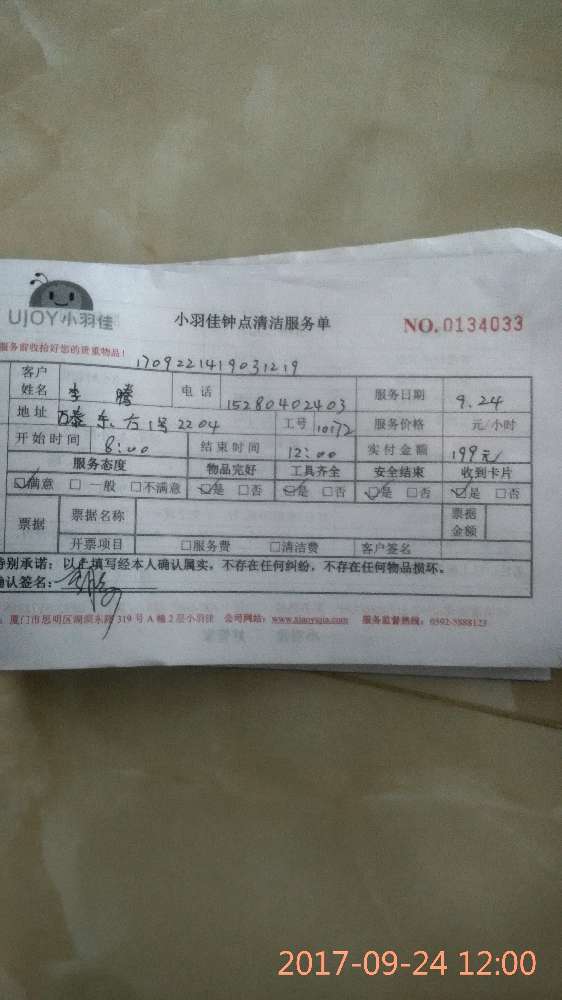 UJOY小羽佳
小羽佳钟点清洁服务单
NO.0134033
服务前收拾好您的贵重物品!
1709221419031219
客户姓名 李腾 电话 15280402403 服务日期 9.24
地址 万泰东方1号2204 工号 10172 服务价格 元/小时
开始时间 8:00 结束时间 12:00 实付金额 199元
服务态度 物品完好 工具齐全 安全结束 收到卡片
☑满意 □一般 □不满意 ☑是 □否 ☑是 □否 ☑是 □否 ☑是 □否
票据 票据名称 票据金额
开票项目 □服务费 □清洁费 客户签名
特别承诺:以上填写经本人确认属实,不存在任何纠纷,不存在任何物品损坏。
确认签名:
厦门市思明区湖滨东路319号A幢2层小羽佳 公司网站:www.xiaoyujia.com 服务监督热线:0592-5888123
2017-09-24 12:00